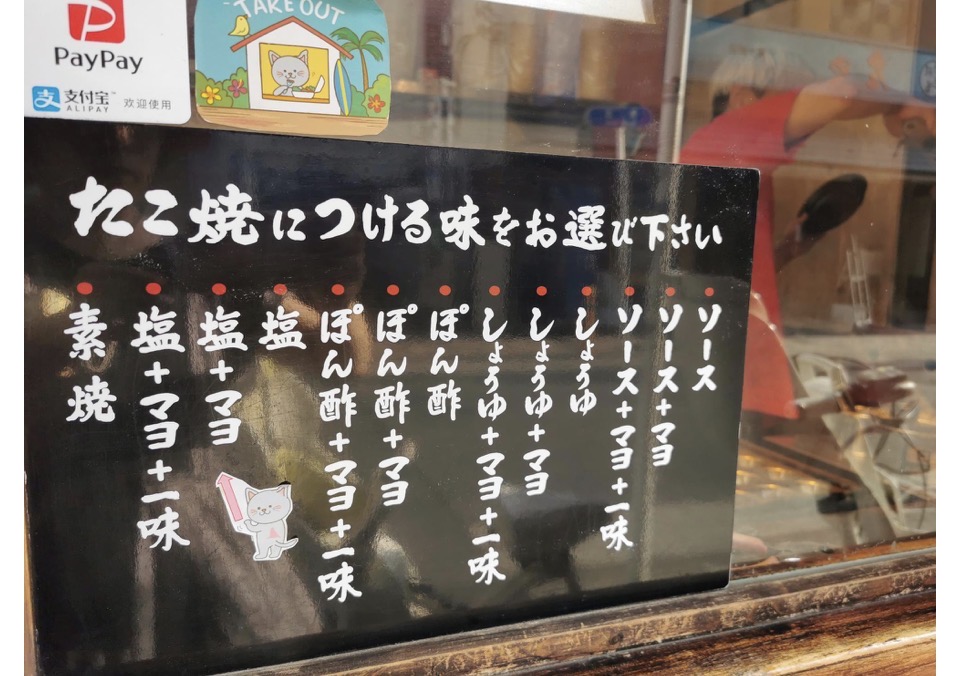 PayPay
支付宝™
ALIPAY
欢迎使用
TAKE OUT
たこ焼につける味をお選び下さい
ソース
ソース+マヨ
ソース+マヨ+一味
しょうゆ
しょうゆ+マヨ
しょうゆ+マヨ+一味
ぽん酢
ぽん酢+マヨ
ぽん酢+マヨ+一味
塩
塩+マヨ
塩+マヨ+一味
素焼